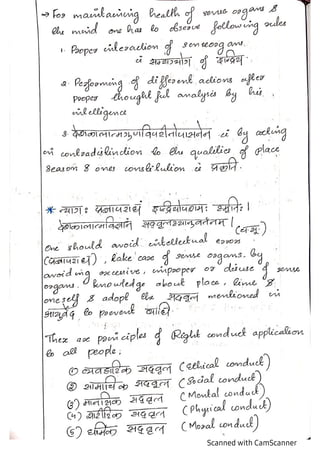 → For maintaining health of sense organs &
the mind one has to observe following rules
1. Proper interaction of senseorgans
i.e सात्म्ययोग of इन्द्रिय
2. Performing of different actions after
proper thoughtful analysis by his
intelligence
3 देशकालात्मगुणविपरीतोपासनेन i.e by acting
on contradistinction to the qualities of place
season & ones constitution i.e प्रकृति.
* त्यागः प्रज्ञापराधानां इन्द्रियोपशमः स्मृतिः।
देशकालात्मविज्ञानं सद्वृत्तस्यानुवर्तनम्।
One should avoid intellectual errors
(प्रज्ञापराध), take care of sense organs. by
avoiding excessive, improper or disuse of sense
organs. knowledge about place, time &
oneself & adopt the सद्वृत्त mentioned in
आयुर्वेद to prevent व्याधि
There are principles of Right conduct application
to all people;
(1) व्यवहारिक सद्वृत्त (Ethical conduct)
(2) सामाजिक सद्वृत्त (Social conduct)
(3) मानसिक सद्वृत्त (Mental conduct)
(4) शारीरिक सद्वृत्त (Physical conduct)
(5) धार्मिक सद्वृत्त (Moral conduct)
Scanned with CamScanner